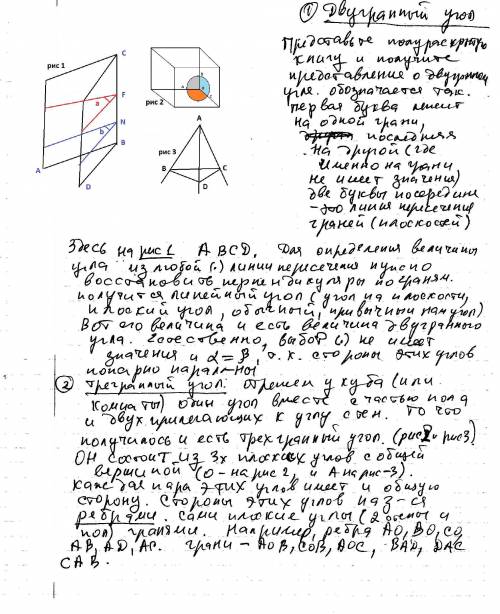 ① Двугранный угол
Представьте полураскрытую
книгу и получите
представление о двугранном
угле. обозначается так.
первая буква лежит
на одной грани,
последняя
на другой (где
именно на грани
не имеет значения)
две буквы посередине
- это линия пересечения
граней (плоскостей)
рис 1
C
F
a
N
b
B
A
D
рис 2
рис 3
A
B
C
D
Здесь на рис 1 ABCD. Для определения величины
угла из любой (.) линии пересечения нужно
восстановить перпендикуляры по граням.
получится линейный угол (угол на плоскости,
плоский угол, обычный, привычный нам угол)
Вот его величина и есть величина двугранного
угла. Естественно, выбор (.) не имеет
значения и α = β, т.к. стороны этих углов
попарно параллельны
② трегранный угол. отрежем у куба (или
комнаты) один угол вместе с частью пола
и двух прилегающих к углу стен. То что
получилось и есть трехгранный угол. (рис 2 и рис 3).
Он состоит из 3х плоских углов с общей
вершиной (О - на рис 2, и А на рис - 3).
каждая пара этих углов имеет и общую
сторону. Стороны этих углов наз-ся
ребрами. Сами плоские углы (2 стены и
пол) гранями. Например, ребра AO, BO, CO,
AB, AD, AC. грани - AOB, COB, AOC, BAD, DAC
CAB.